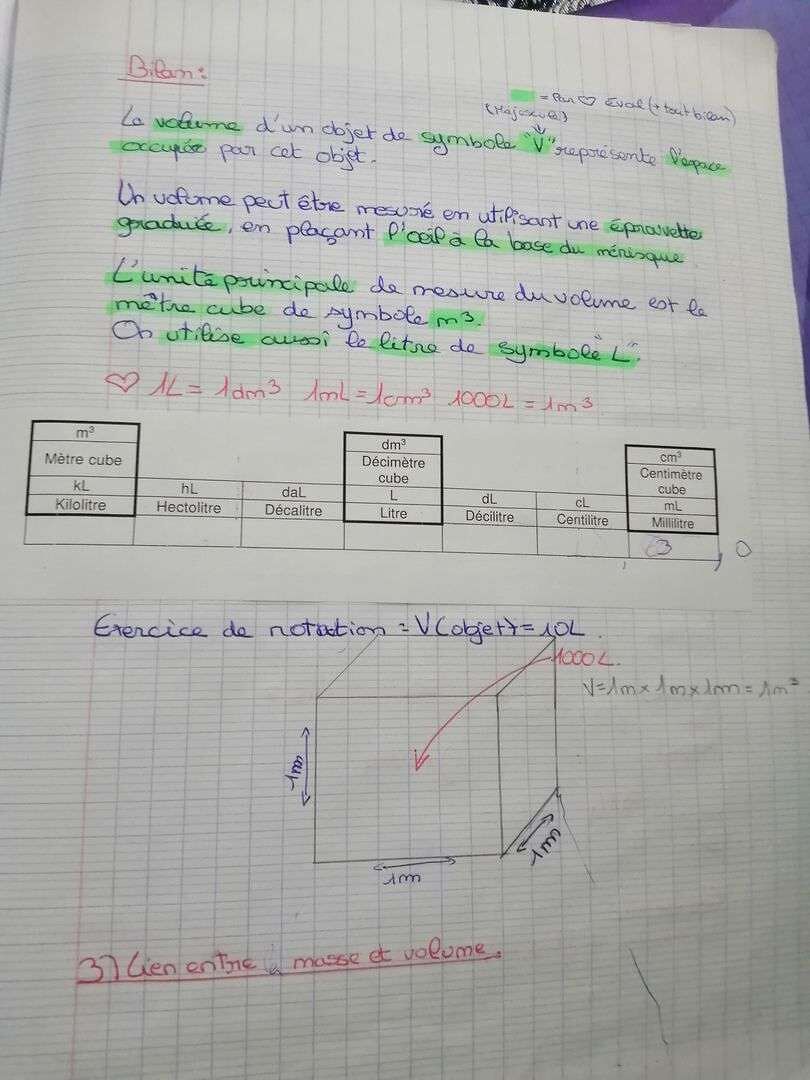 Bilan:
= Par ♡ éval (+ tout bilan)
(Majuscule)
Le volume d'un objet de symbole "V" représente l'espace
occupée par cet objet.
Un volume peut être mesuré en utilisant une éprouvette
graduée, en plaçant l'oeil à la base du ménisque
L'unité principale de mesure du volume est le
mètre cube de symbole m³.
On utilise aussi le litre de symbole "L".
♡ 1L = 1dm³ 1mL = 1cm³ 1000L = 1m³
m³ dm³ cm³
Mètre cube Décimètre cube Centimètre cube
kL hL daL L dL cL mL
Kilolitre Hectolitre Décalitre Litre Décilitre Centilitre Millilitre
3, 0
Exercice de notation = V(objet) = 10L.
1000L.
V = 1m × 1m × 1m = 1m³
1m
1m
1m
3) Lien entre masse et volume.